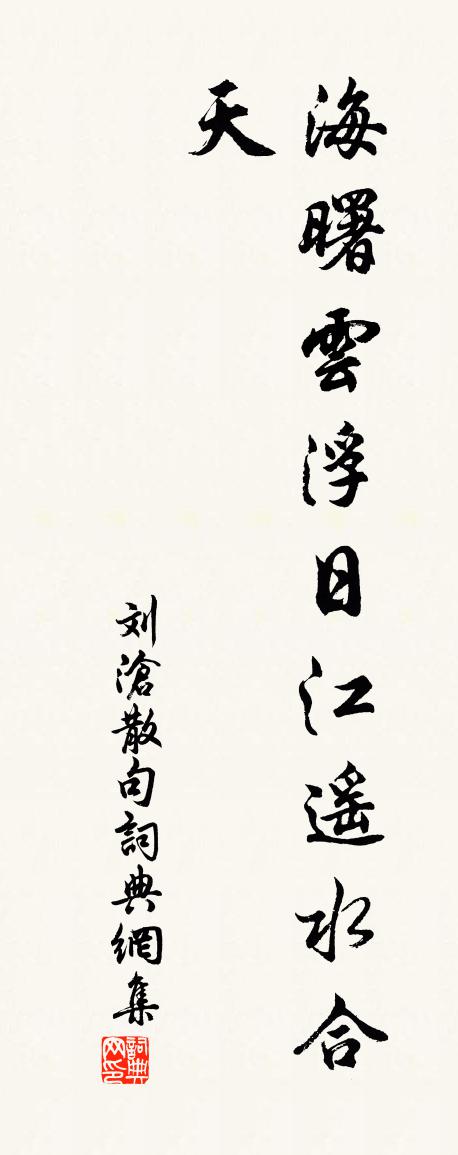 海曙雲浮日江遥水合
天
刘滄散句詞典網集
詞典
网印